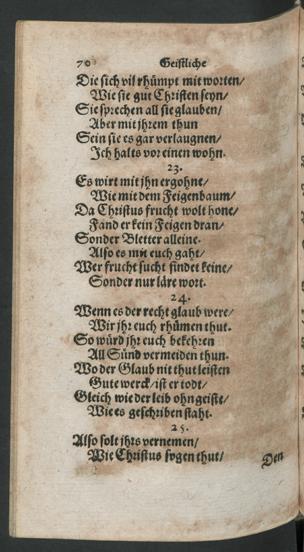 70 Geistliche
Die sich vil rhümpt mit worten/
Wie sie gut Christen seyn/
Sie sprechen all sie glauben/
Aber mit jhrem thun
Sein sie es gar verlaugnen/
Ich halts vor einen wohn.
23.
Es wirt mit jhn ergohne/
Wie mit dem Feigenbaum/
Da Christus frucht wolt hone/
Fand er kein Feigen dran/
Sonder Bletter alleine.
Also es mit euch gaht/
Wer frucht sucht findet keine/
Sonder nur läre wort.
24.
Wenn es der recht glaub were/
Wir jhr euch rhümen thut.
So würd jhr euch bekehren
All Sünd vermeiden thun.
Wo der Glaub nit thut leisten
Gute werck/ ist er todt/
Gleich wie der leib ohn geiste/
Wie es geschriben staht.
25.
Also solt jhrs vernemen/
Wie Christus sagen thut/
Den